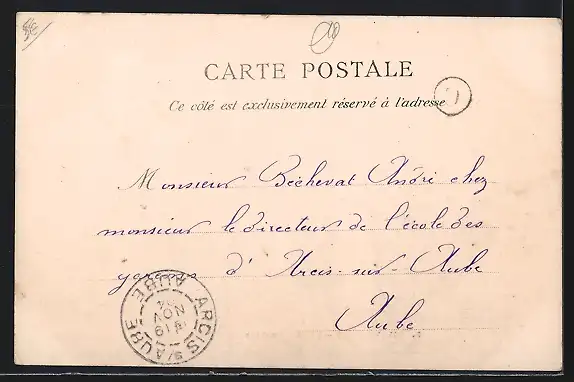 CARTE POSTALE
Ce côté est exclusivement réservé à l'adresse
Monsieur Béchevat André chez
monsieur le directeur de l'école des
garçons d'Arcis-sur-Aube
Aube
ARCIS S/ AUBE
NOV
AUBE